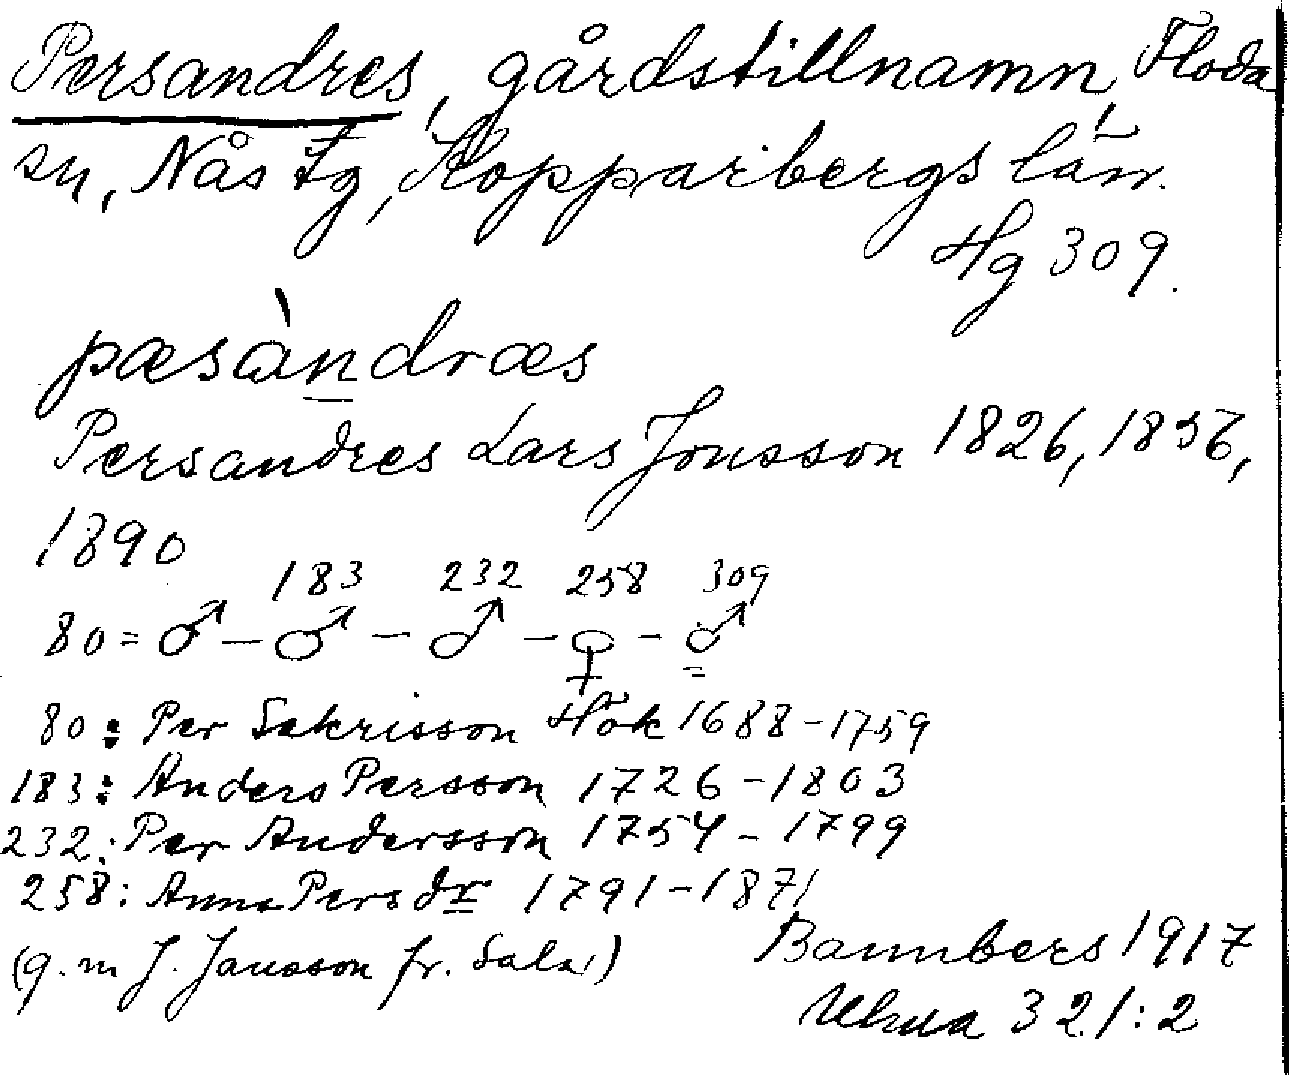 Persandres, gårdstillnamn, Floda
sn, Nås fg, Kopparbergs län.
Hg 309.
pæsàndræs
Persandres Lars Jonsson 1826, 1856,
1890
183 232 258 309
80 = ♂ – ♂ – ♂ – ♀ – ♂
80: Per Sakrisson Hök 1688–1759
183: Anders Persson 1726–1803
232: Per Andersson 1754–1799
258: Anna Persdr 1791–1871
(g. m J. Jansson fr. Sala)
Bannbers 1917
Ulma 321:2